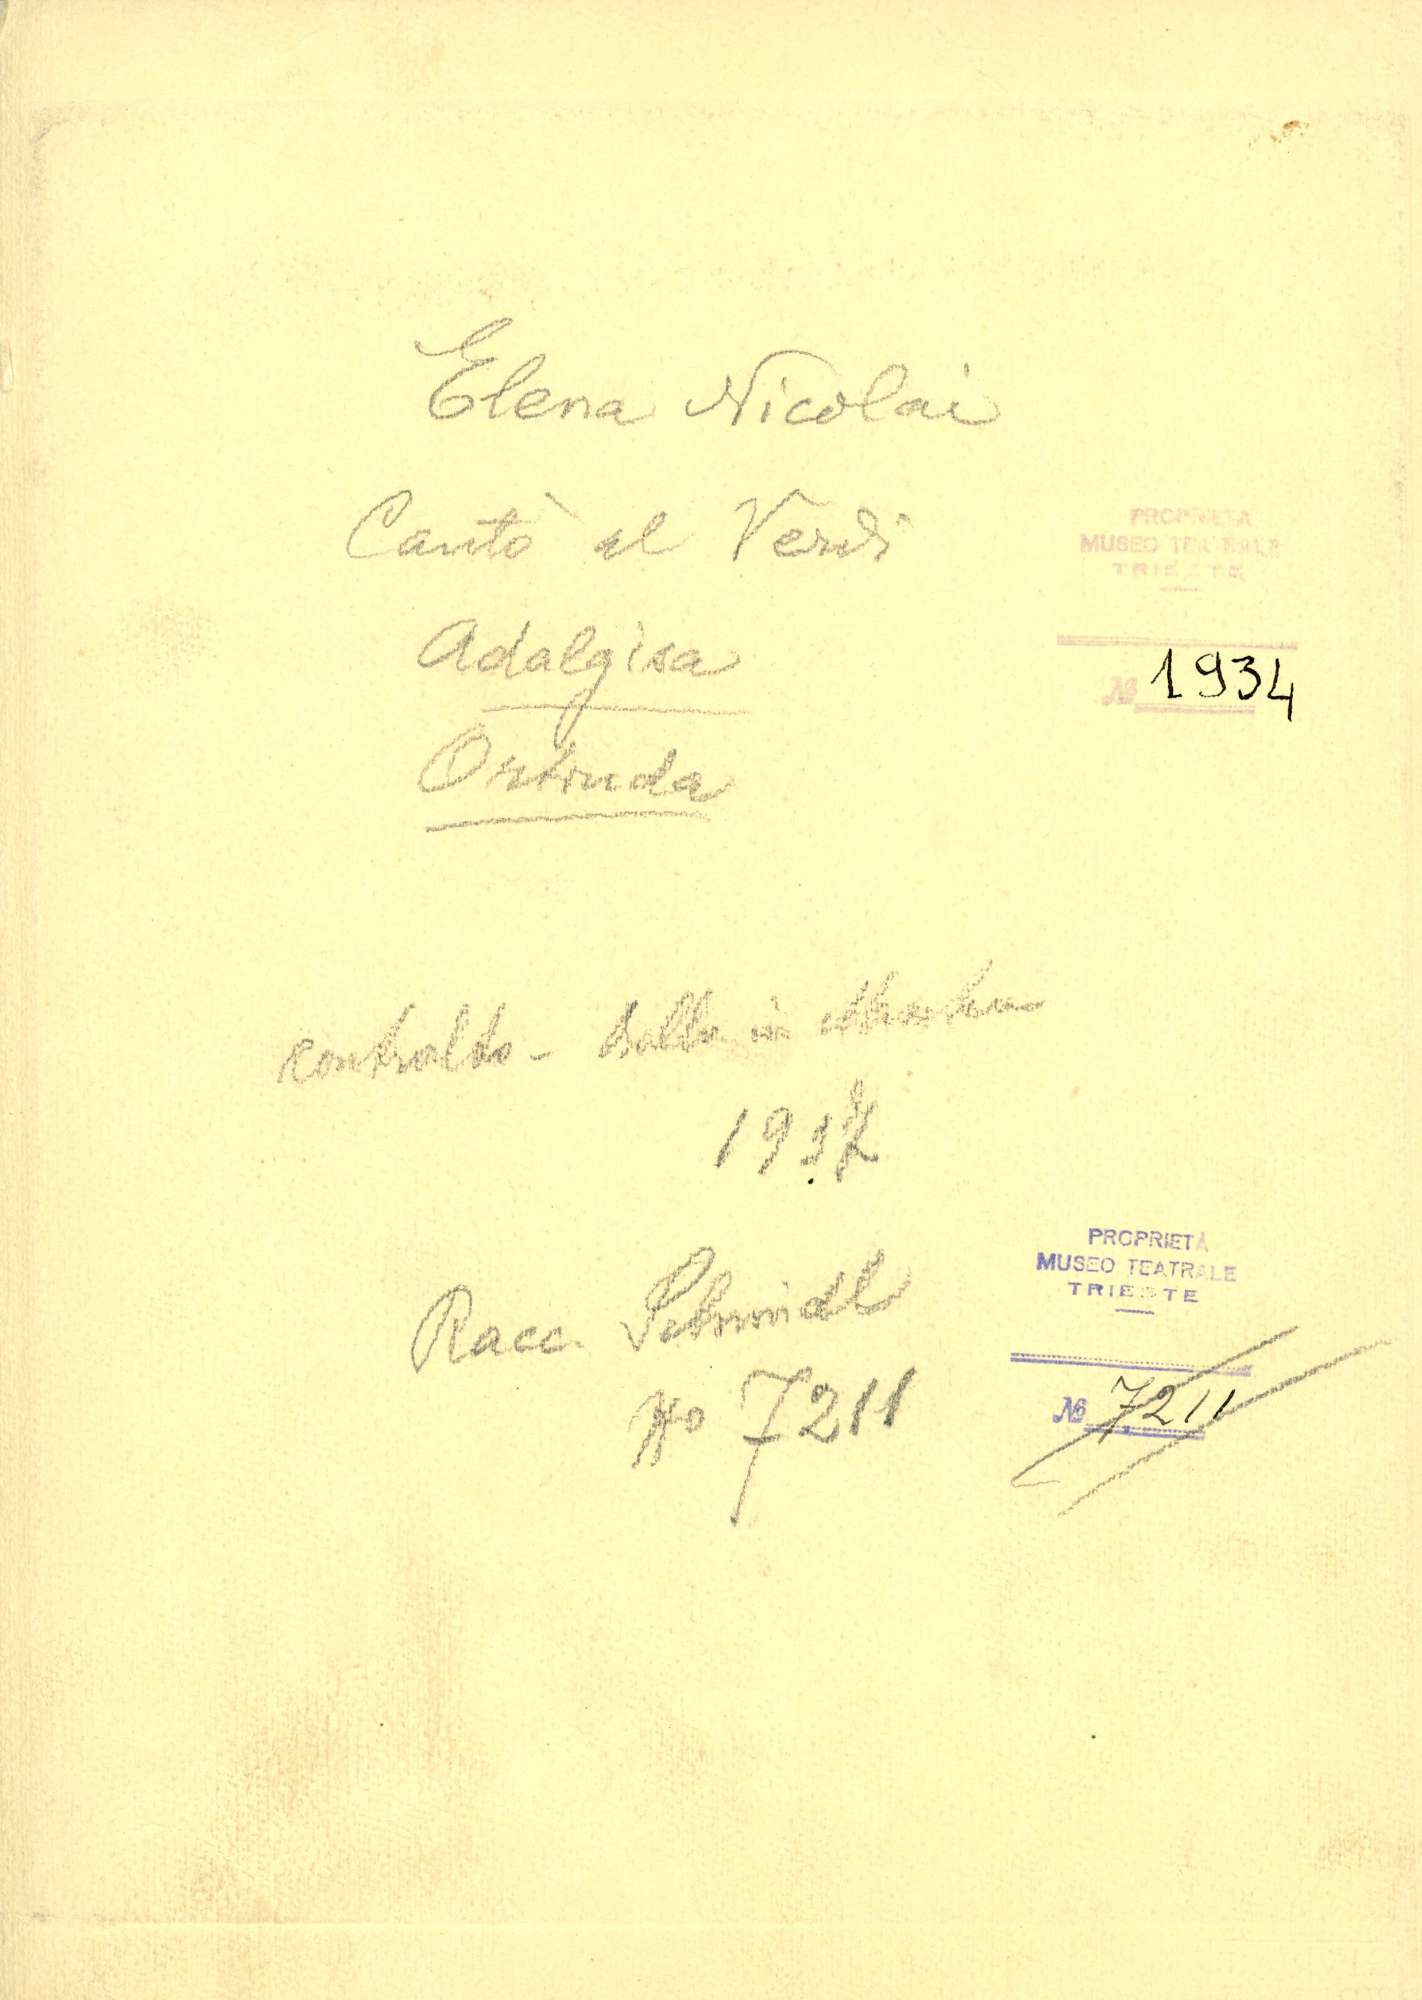 Elena Nicolai
Cantò al Verdi
Adalgisa
Ortruda
PROPRIETÀ
MUSEO TEATRALE
TRIESTE
№ 1934
contralto - in
Racc. Schmidl
No 7211
PROPRIETÀ
MUSEO TEATRALE
TRIESTE
№ 7211